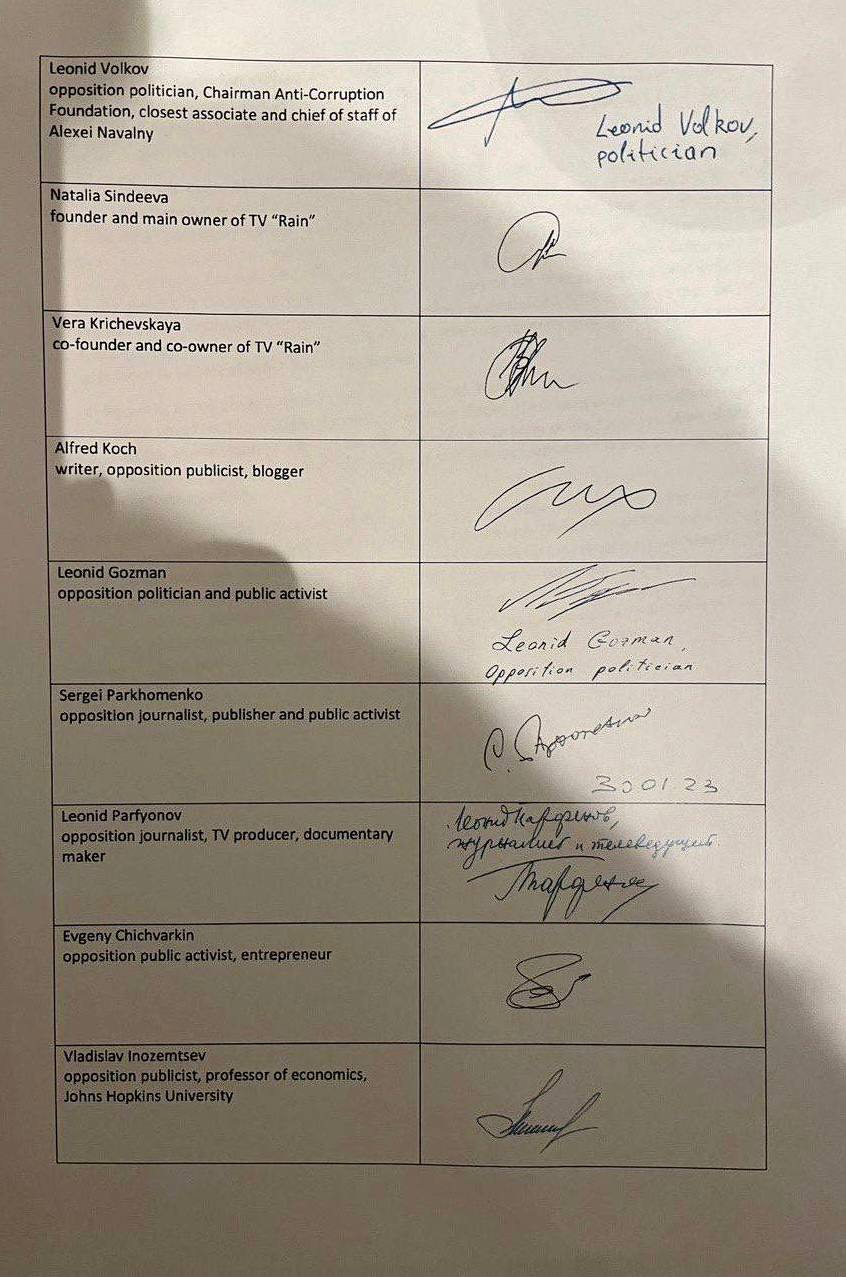 Leonid Volkov
opposition politician, Chairman Anti-Corruption
Foundation, closest associate and chief of staff of
Alexei Navalny
Leonid Volkov,
politician
Natalia Sindeeva
founder and main owner of TV “Rain”
Vera Krichevskaya
co-founder and co-owner of TV “Rain”
Alfred Koch
writer, opposition publicist, blogger
Leonid Gozman
opposition politician and public activist
Leonid Gozman,
Opposition politician
Sergei Parkhomenko
opposition journalist, publisher and public activist
30 01 23
Leonid Parfyonov
opposition journalist, TV producer, documentary
maker
Леонид Парфенов,
журналист и телеведущий
Evgeny Chichvarkin
opposition public activist, entrepreneur
Vladislav Inozemtsev
opposition publicist, professor of economics,
Johns Hopkins University